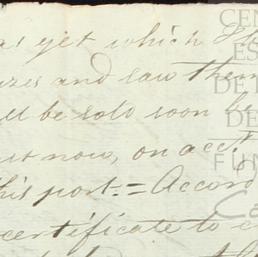 as yet which I
and saw them
be sold soon
now, on acct.
this port. = Accord
certificate to
CEN
ES
DE
DE
FUN
Ca